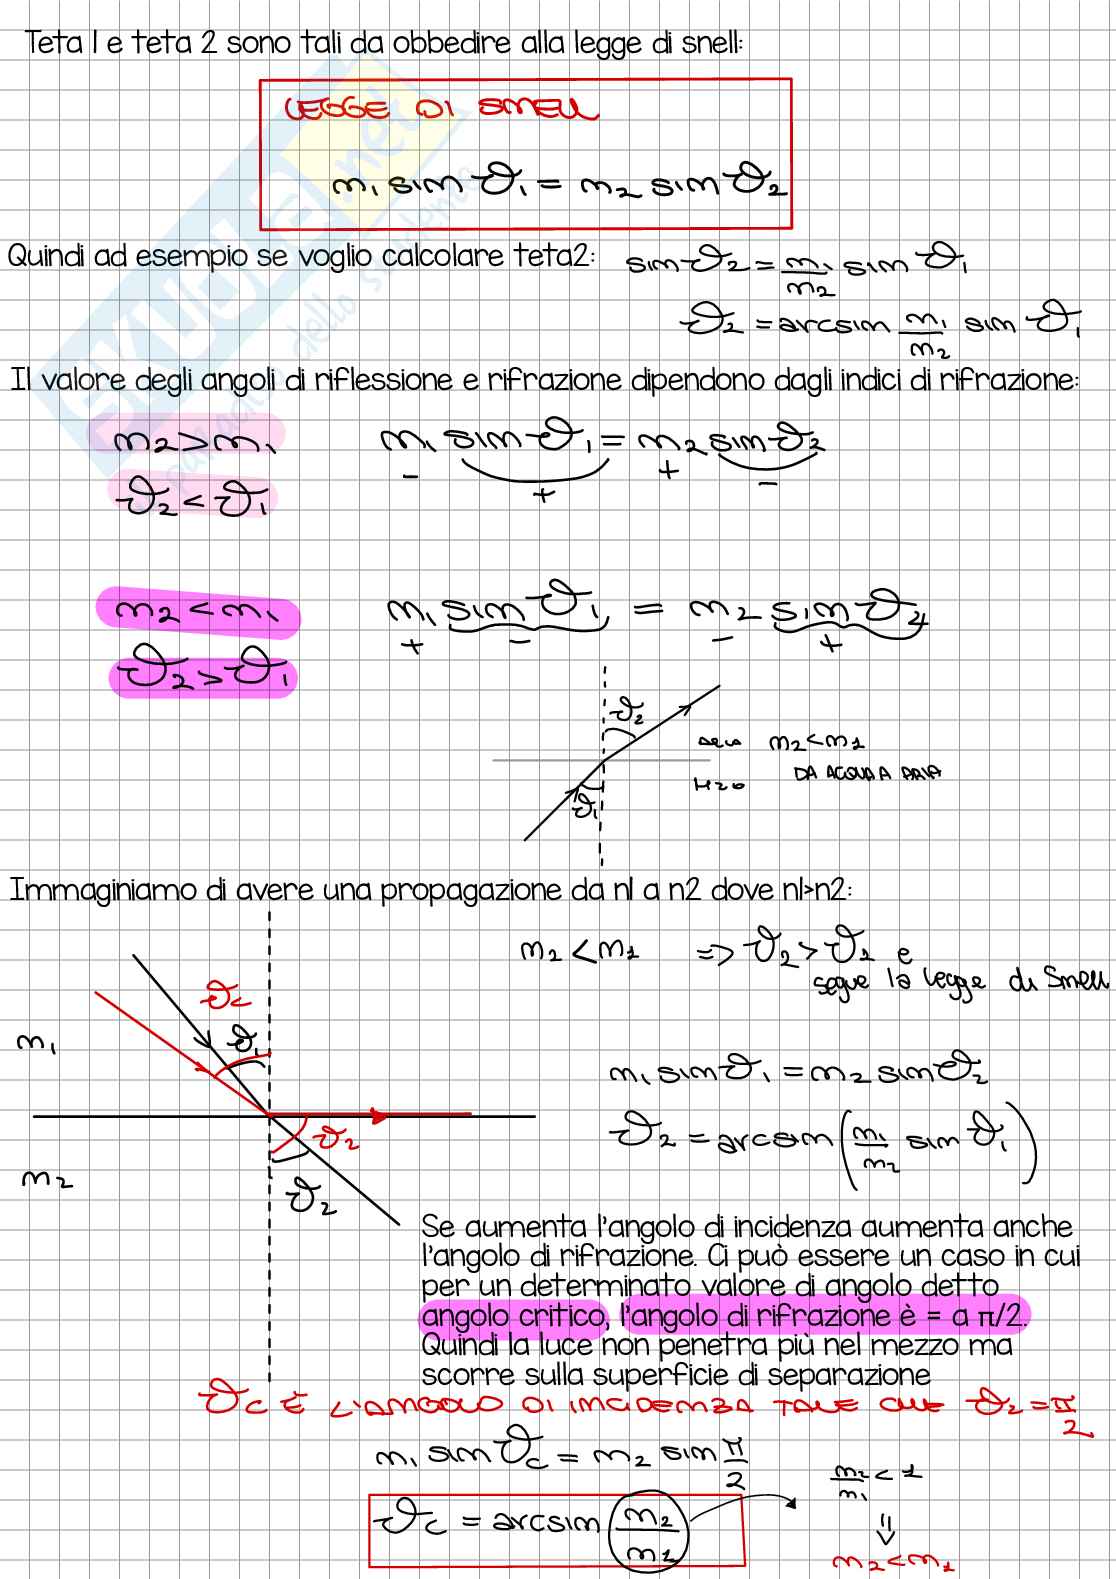 Teta 1 e teta 2 sono tali da obbedire alla legge di snell:
LEGGE DI SNELL
n₁ sin ϑ₁ = n₂ sin ϑ₂
Quindi ad esempio se voglio calcolare teta2: sin ϑ₂ = n₁/n₂ sin ϑ₁
ϑ₂ = arcsin n₁/n₂ sin ϑ₁
Il valore degli angoli di riflessione e rifrazione dipendono dagli indici di rifrazione:
n₂ > n₁ n₁ sin ϑ₁ = n₂ sin ϑ₂
- + + -
ϑ₂ < ϑ₁
n₂ < n₁ n₁ sin ϑ₁ = n₂ sin ϑ₂
+ - - +
ϑ₂ > ϑ₁
ϑ₂
n₂ < n₁
DA ACQUA A ARIA
H₂O
ϑ₁
Immaginiamo di avere una propagazione da n1 a n2 dove n1>n2:
n₂ < n₁ => ϑ₂ > ϑ₁ e
segue la legge di Snell
ϑc
ϑ₁
n₁
n₁ sin ϑ₁ = n₂ sin ϑ₂
ϑ₂ = arcsin (n₁/n₂ sin ϑ₁)
ϑ₂
n₂
ϑ₂
Se aumenta l'angolo di incidenza aumenta anche
l'angolo di rifrazione. Ci può essere un caso in cui
per un determinato valore di angolo detto
angolo critico, l'angolo di rifrazione è = a π/2.
Quindi la luce non penetra più nel mezzo ma
scorre sulla superficie di separazione
ϑc È L'ANGOLO DI INCIDENZA TALE CHE ϑ₂ = π/2
n₁ sin ϑc = n₂ sin π/2
n₂/n₁ < 1
ϑc = arcsin (n₂/n₁)
n₂ < n₁
SKUOLA.net
paradiso dello studente